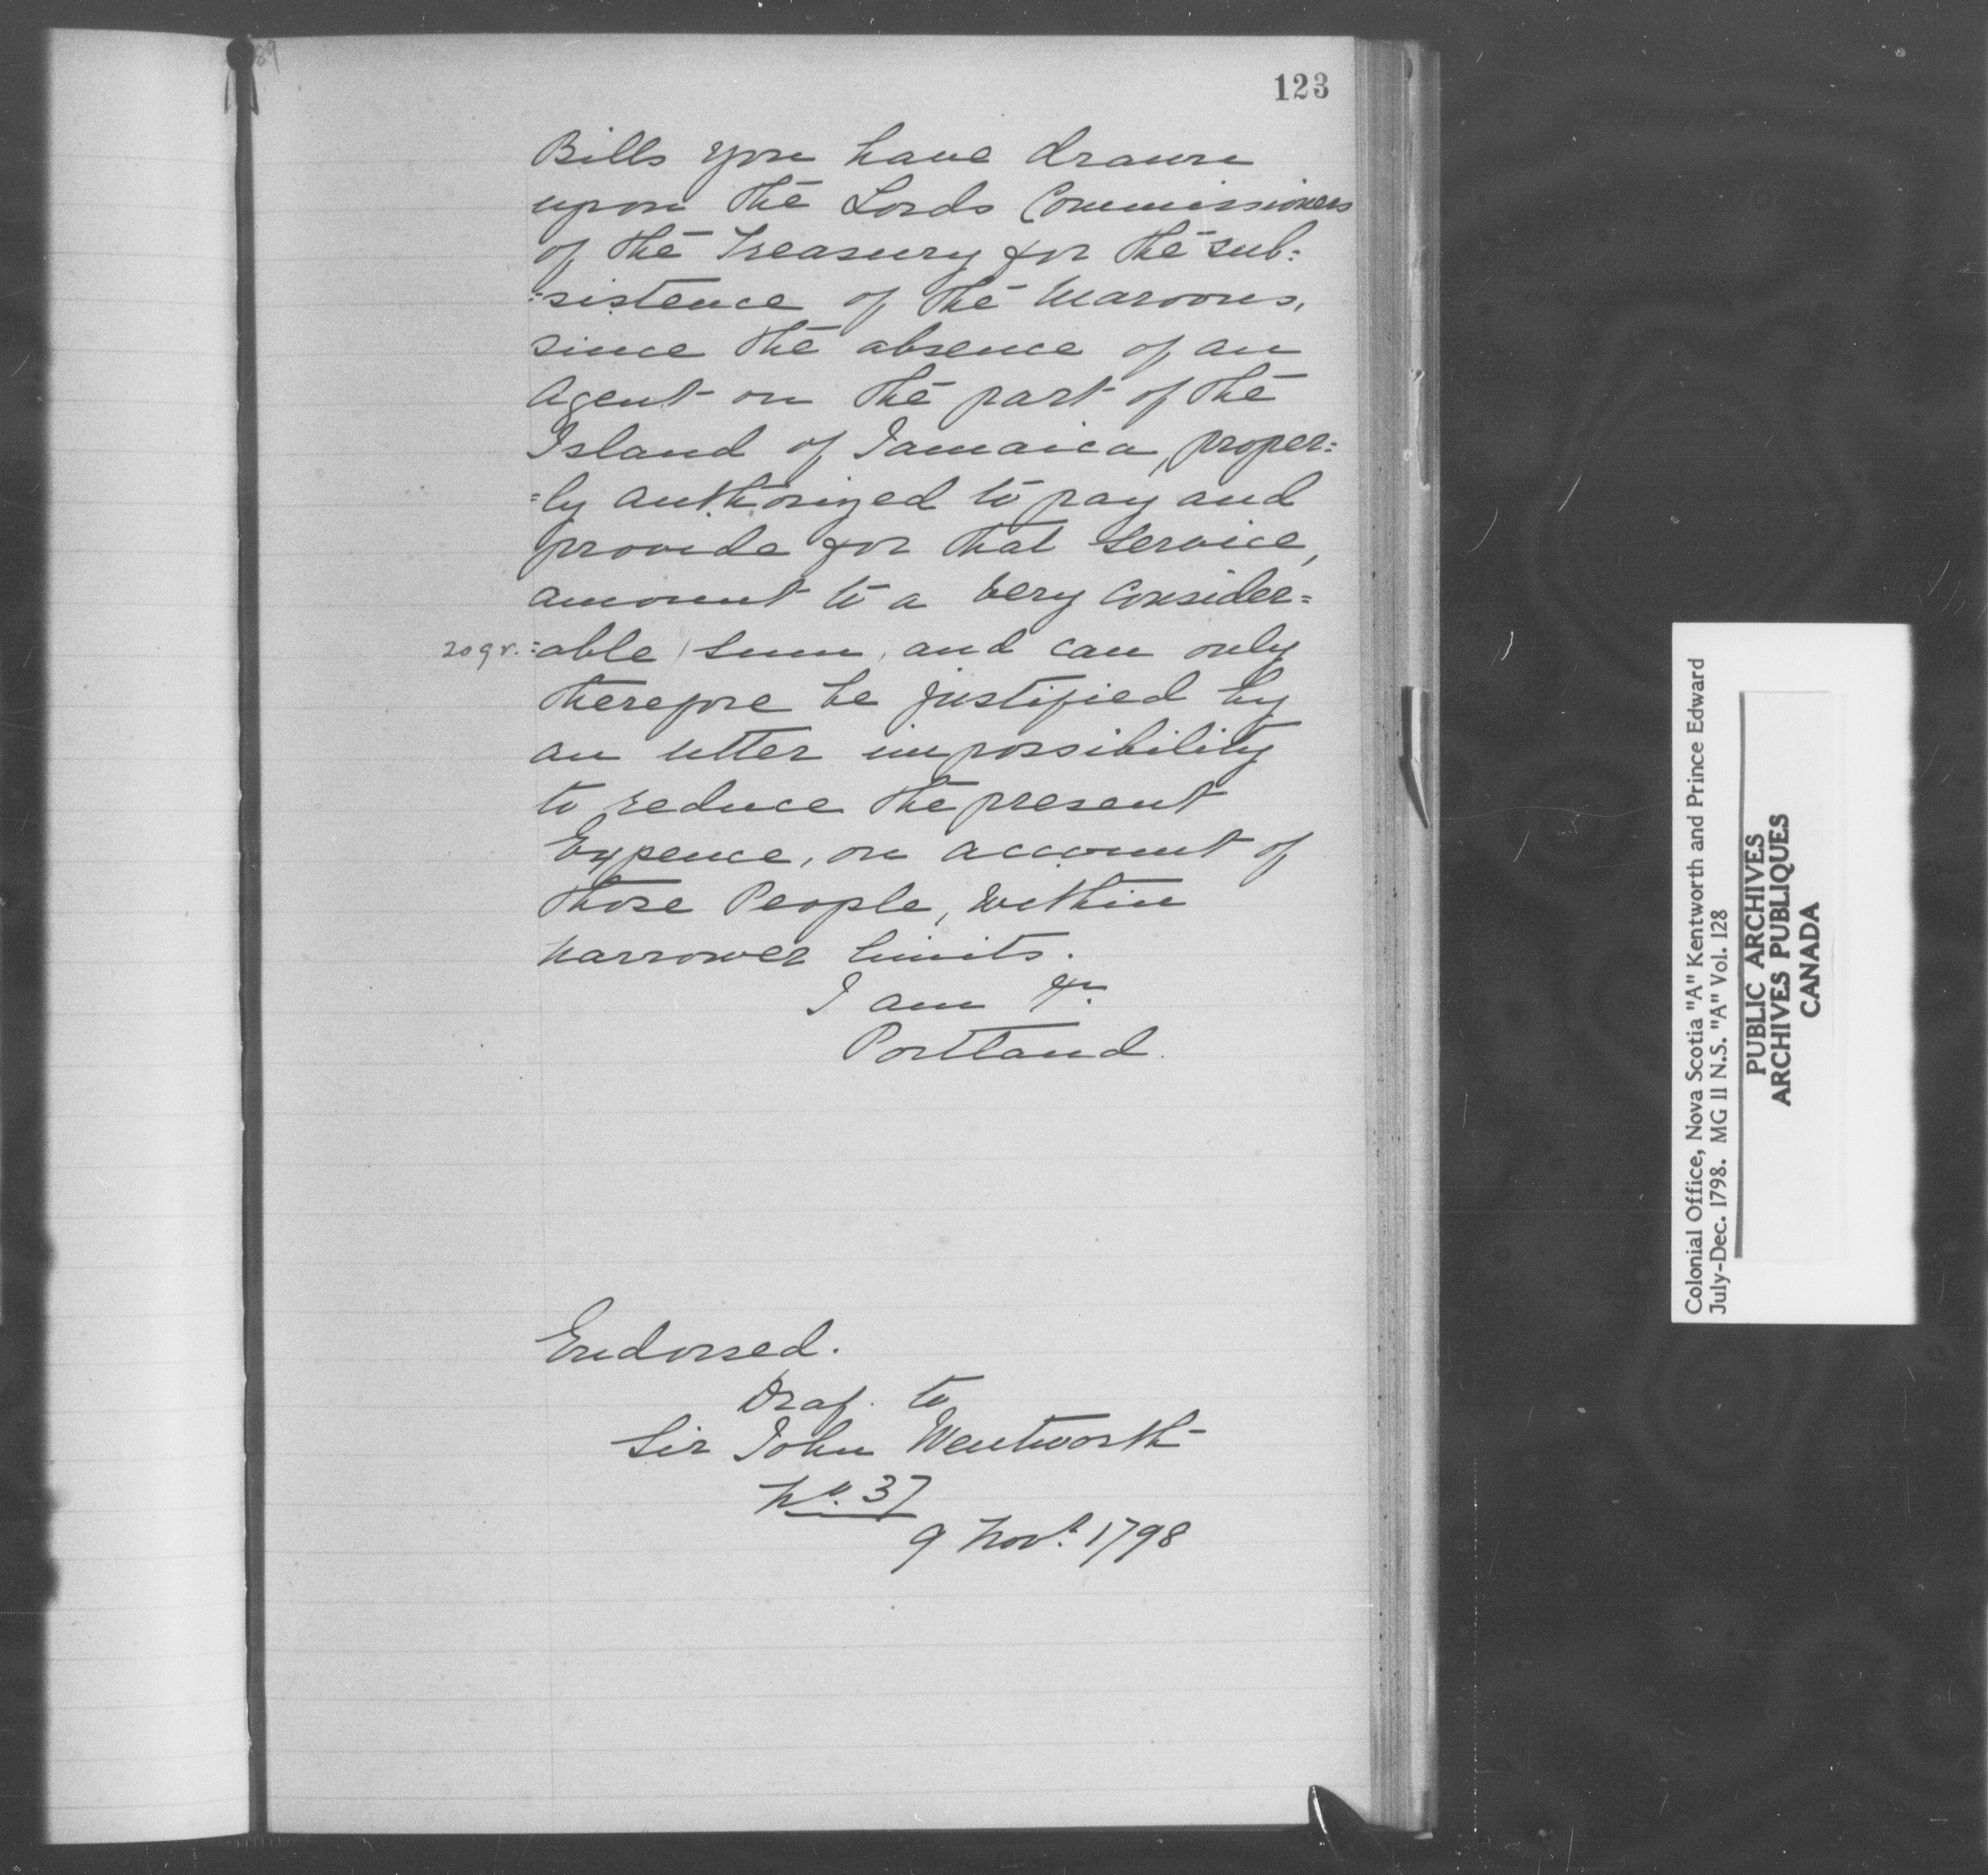 123
Bills you have drawn
upon the Lords Commissioners
of the Treasury for the sub=
=sistence of the Maroons,
since the absence of an
Agent on the part of the
Island of Jamaica, proper=
=ly authorized to pay and
provide for that Service,
amount to a very consider=
209 v. =able / sum, and can only
therefore be justified by
an utter impossibility
to reduce the present
Expence, on account of
those People, within
narrower limits.
I am &c.
Portland.
Endorsed.
Draf. to
Sir John Wentworth
No. 37
9 Novr. 1798
Colonial Office, Nova Scotia "A" Kentworth and Prince Edward
July-Dec. 1798. MG 11 N.S. "A" Vol. 128
PUBLIC ARCHIVES
ARCHIVES PUBLIQUES
CANADA